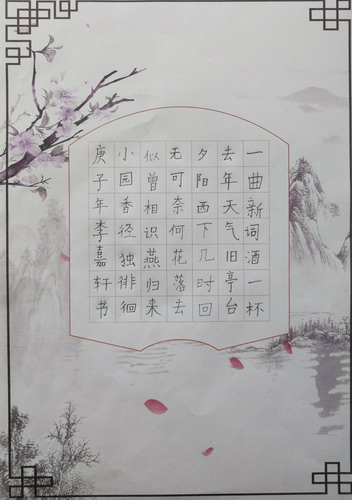 一曲新词酒一杯
去年天气旧亭台
夕阳西下几时回
无可奈何花落去
似曾相识燕归来
小园香径独徘徊
庚子年李嘉轩书